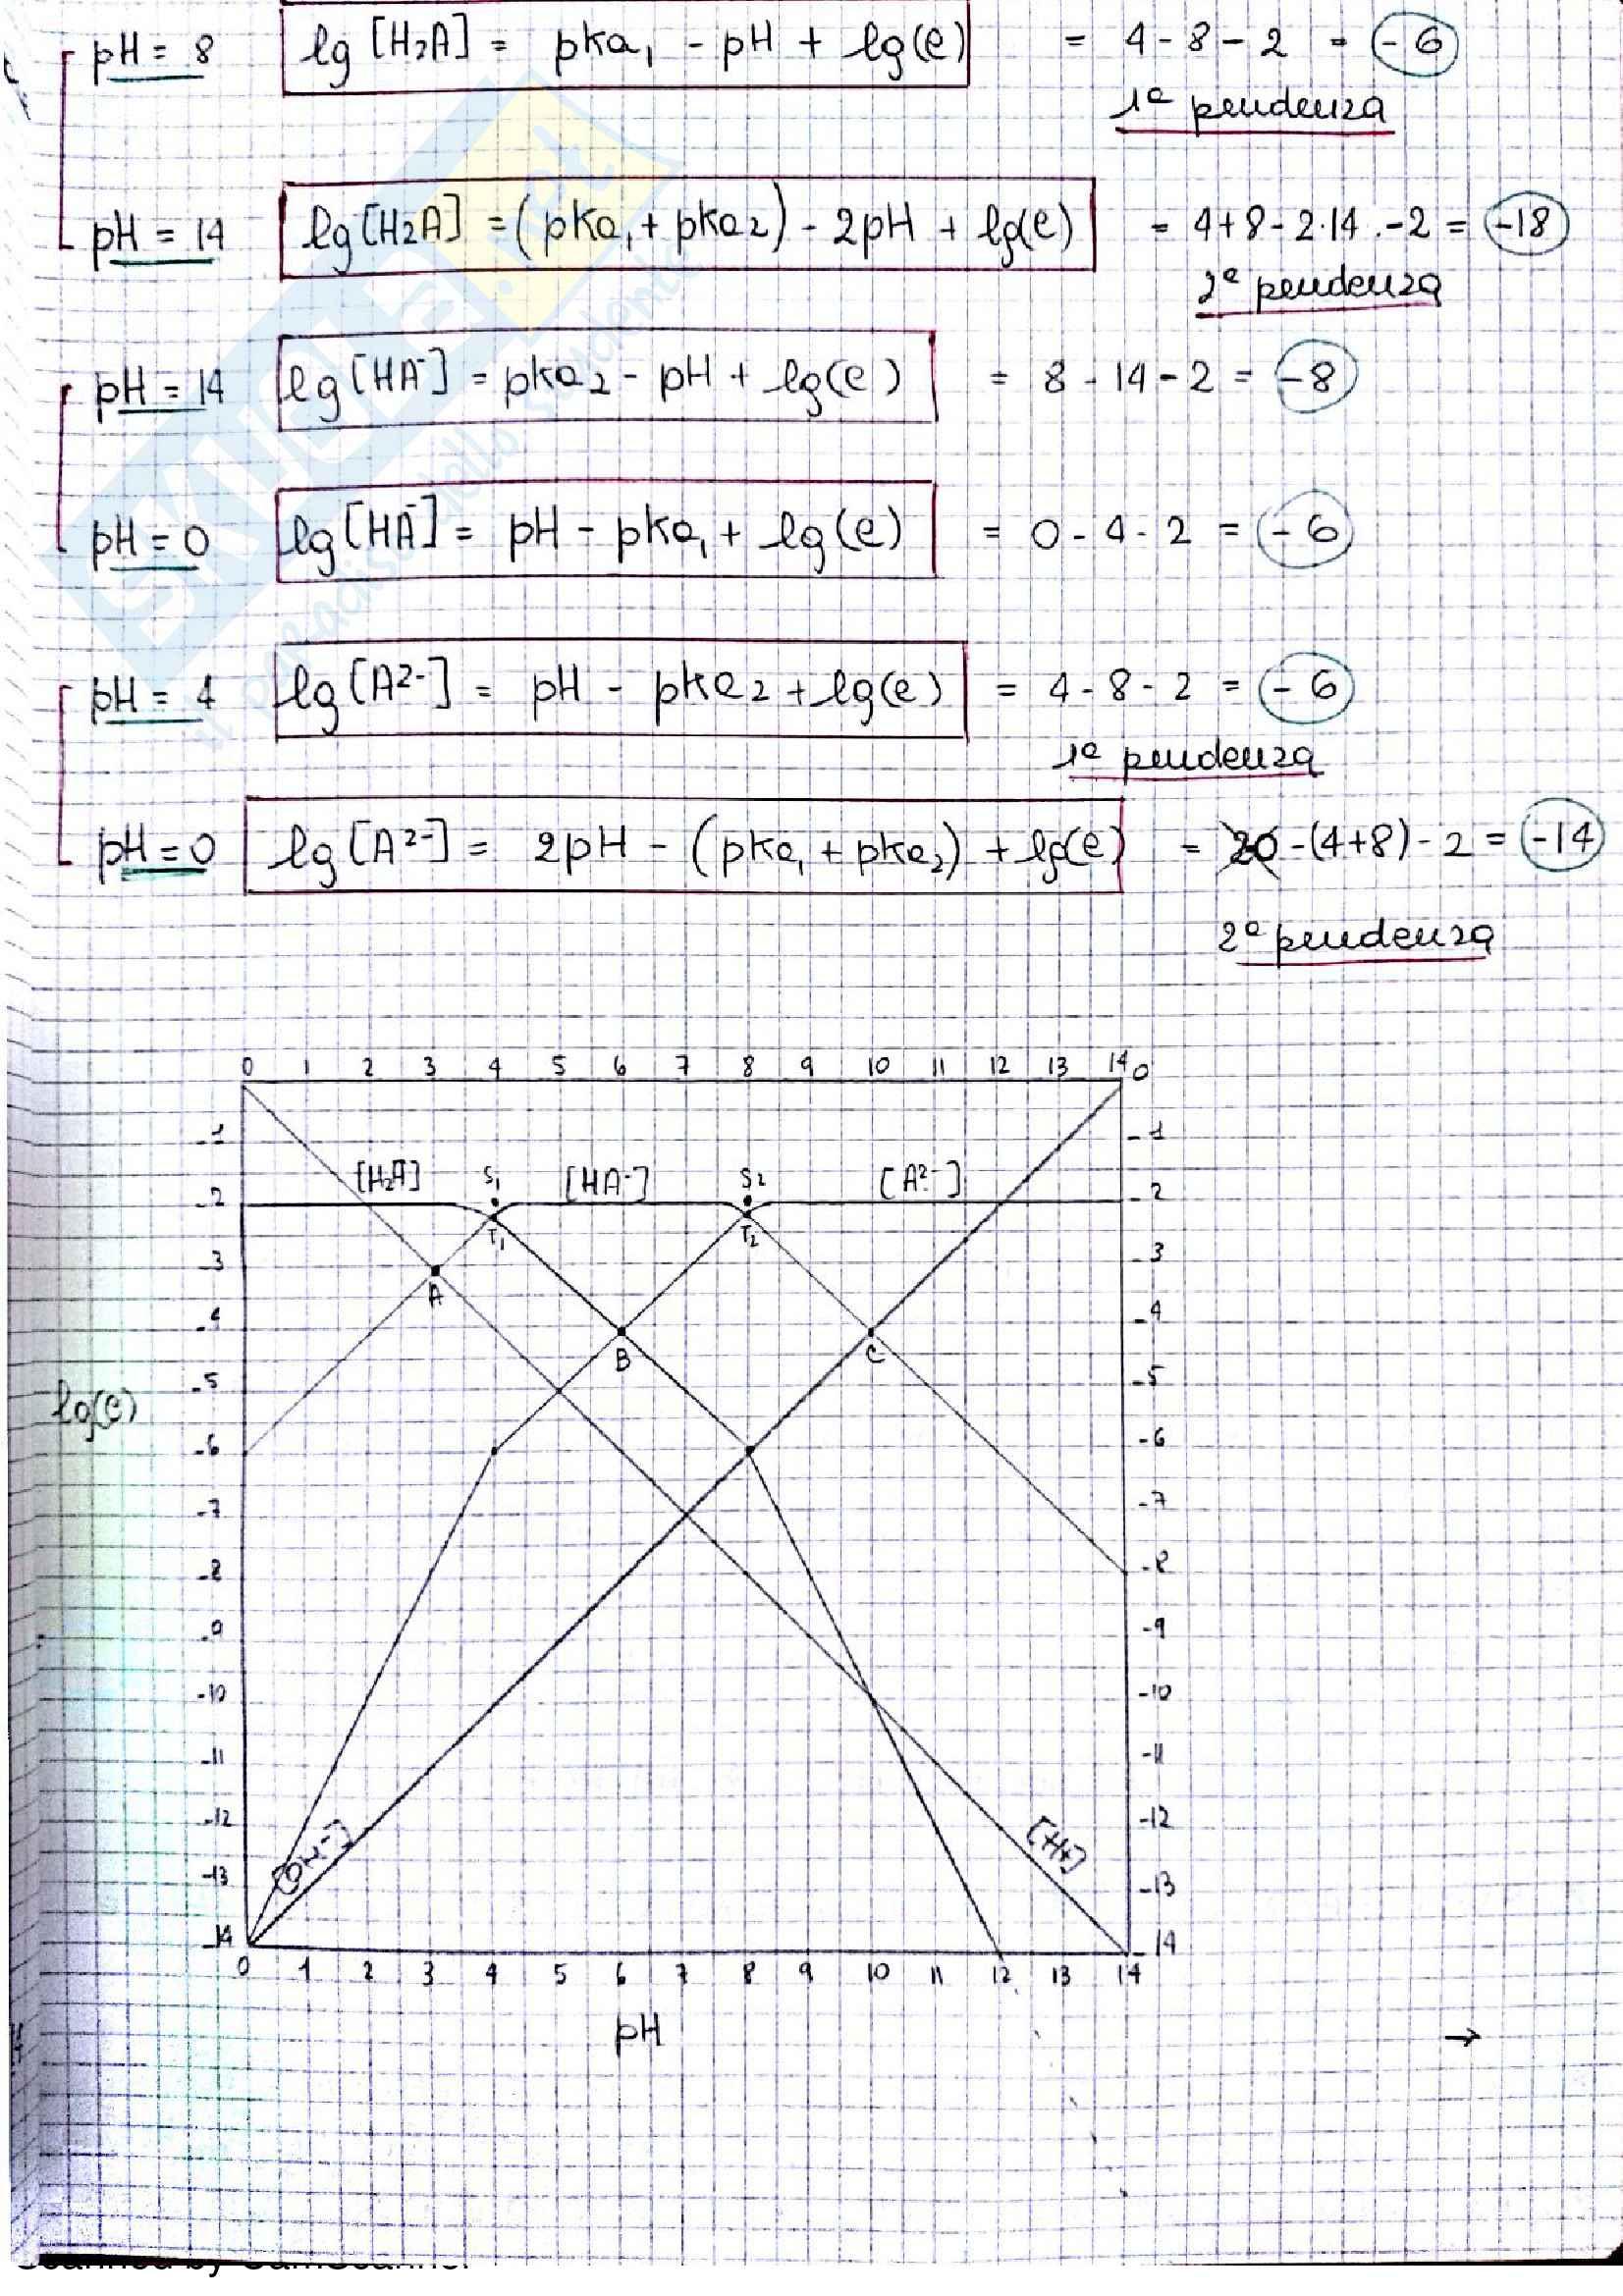 pH = 8 lg [H2A] = pka1 - pH + lg(c) = 4 - 8 - 2 = -6
1ª pendenza
pH = 14 lg [H2A] = (pka1 + pka2) - 2pH + lg(c) = 4+8-2·14.-2 = -18
2ª pendenza
pH = 14 lg [HA-] = pka2 - pH + lg(c) = 8 - 14 - 2 = -8
pH = 0 lg [HA-] = pH - pka1 + lg(c) = 0 - 4 - 2 = -6
pH = 4 lg [A2-] = pH - pka2 + lg(c) = 4 - 8 - 2 = -6
1ª pendenza
pH = 0 lg [A2-] = 2pH - (pka1 + pka2) + lg(c) = -(4+8) - 2 = -14
2ª pendenza
0 1 2 3 4 5 6 7 8 9 10 11 12 13 14 0
-1 -1
[H2A] S1 [HA-] S2 [A2-]
-2 -2
T1 T2
-3 -3
A
-4 -4
B C
-5 -5
lg(c)
-6 -6
-7 -7
-8 -8
-9 -9
-10 -10
-11 -11
-12 -12
[OH-] [H+]
-13 -13
-14 -14
0 1 2 3 4 5 6 7 8 9 10 11 12 13 14
pH →
Scanned by CamScanner